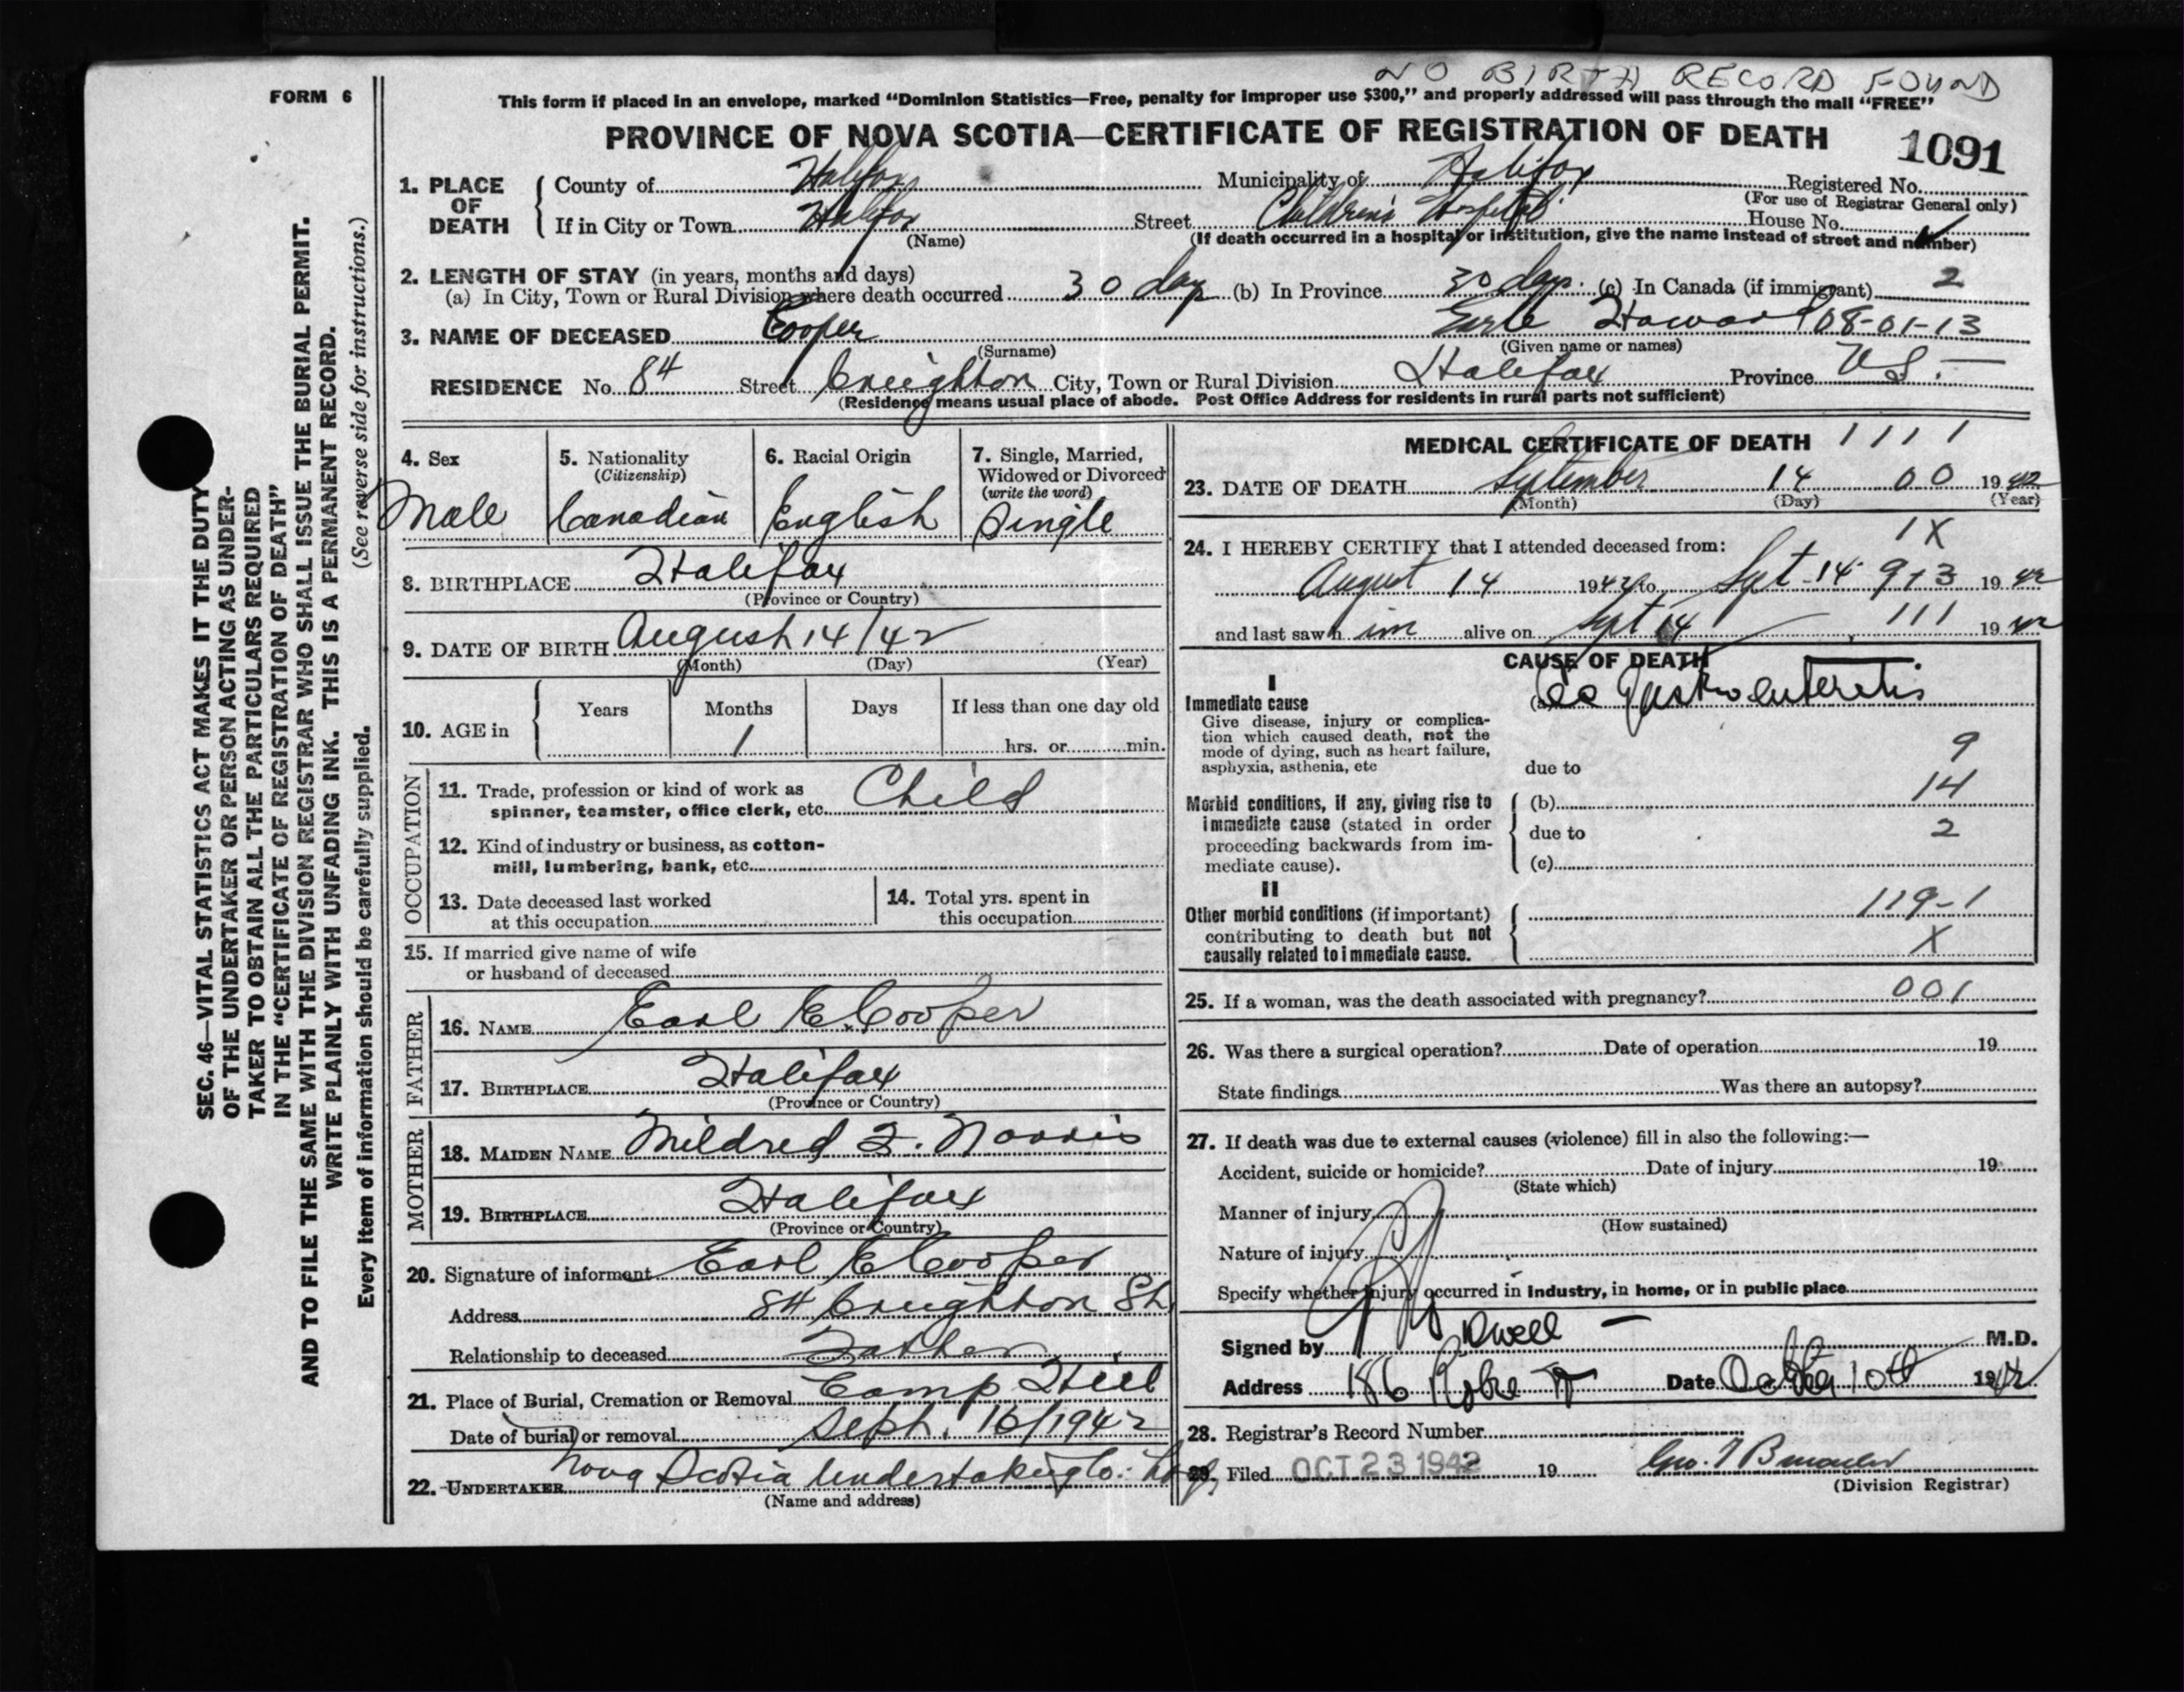 NO BIRTH RECORD FOUND
FORM 6
This form if placed in an envelope, marked “Dominion Statistics—Free, penalty for improper use $300,” and properly addressed will pass through the mail “FREE”
PROVINCE OF NOVA SCOTIA—CERTIFICATE OF REGISTRATION OF DEATH
1091
SEC. 46—VITAL STATISTICS ACT MAKES IT THE DUTY
OF THE UNDERTAKER OR PERSON ACTING AS UNDER-
TAKER TO OBTAIN ALL THE PARTICULARS REQUIRED
IN THE “CERTIFICATE OF REGISTRATION OF DEATH”
AND TO FILE THE SAME WITH THE DIVISION REGISTRAR WHO SHALL ISSUE THE BURIAL PERMIT.
WRITE PLAINLY WITH UNFADING INK. THIS IS A PERMANENT RECORD.
Every item of information should be carefully supplied. (See reverse side for instructions.)
1. PLACE OF DEATH
County of Halifax Municipality of Halifax Registered No.
(For use of Registrar General only)
If in City or Town Halifax Street Children's Hospital House No.
(Name) (If death occurred in a hospital or institution, give the name instead of street and number)
2. LENGTH OF STAY (in years, months and days)
(a) In City, Town or Rural Division where death occurred 30 days (b) In Province 30 days. (c) In Canada (if immigrant) 2
3. NAME OF DECEASED Cooper Earle Howard 08-01-13
(Surname) (Given name or names)
RESIDENCE No. 84 Street Creighton City, Town or Rural Division Halifax Province N.S.
(Residence means usual place of abode. Post Office Address for residents in rural parts not sufficient)
4. Sex
Male
5. Nationality
(Citizenship)
Canadian
6. Racial Origin
English
7. Single, Married,
Widowed or Divorced
(write the word)
Single
8. BIRTHPLACE Halifax
(Province or Country)
9. DATE OF BIRTH August 14/42
(Month) (Day) (Year)
10. AGE in
Years Months Days If less than one day old
1 hrs. or min.
OCCUPATION
11. Trade, profession or kind of work as
spinner, teamster, office clerk, etc. Child
12. Kind of industry or business, as cotton-
mill, lumbering, bank, etc.
13. Date deceased last worked
at this occupation
14. Total yrs. spent in
this occupation
15. If married give name of wife
or husband of deceased
FATHER
16. NAME Earl E. Cooper
17. BIRTHPLACE Halifax
(Province or Country)
MOTHER
18. MAIDEN NAME Mildred F. Norris
19. BIRTHPLACE Halifax
(Province or Country)
20. Signature of informant Earl E Cooper
Address 84 Creighton St.
Relationship to deceased Father
21. Place of Burial, Cremation or Removal Camp Hill
Date of burial or removal Sept. 16/1942
22. UNDERTAKER Nova Scotia Undertaking Co.
(Name and address)
MEDICAL CERTIFICATE OF DEATH 1111
23. DATE OF DEATH September 14 00 1942
(Month) (Day) (Year)
24. I HEREBY CERTIFY that I attended deceased from: 1X
August 14 1942 to Sept 14 9+3 1942
and last saw him alive on Sept 14 111 1942
CAUSE OF DEATH
I
Immediate cause
Give disease, injury or complica-
tion which caused death, not the
mode of dying, such as heart failure,
asphyxia, asthenia, etc
(a) Gastroenteritis
9
due to
Morbid conditions, if any, giving rise to
immediate cause (stated in order
proceeding backwards from im-
mediate cause).
(b) 14
due to 2
(c)
II
Other morbid conditions (if important)
contributing to death but not
causally related to immediate cause.
119-1
X
25. If a woman, was the death associated with pregnancy? 001
26. Was there a surgical operation? Date of operation 19
State findings Was there an autopsy?
27. If death was due to external causes (violence) fill in also the following:—
Accident, suicide or homicide? Date of injury 19
(State which)
Manner of injury
(How sustained)
Nature of injury
Specify whether injury occurred in industry, in home, or in public place
Signed by M.D.
Address 186 Date 10th 1942
28. Registrar's Record Number
29. Filed OCT 23 1942 19
(Division Registrar)